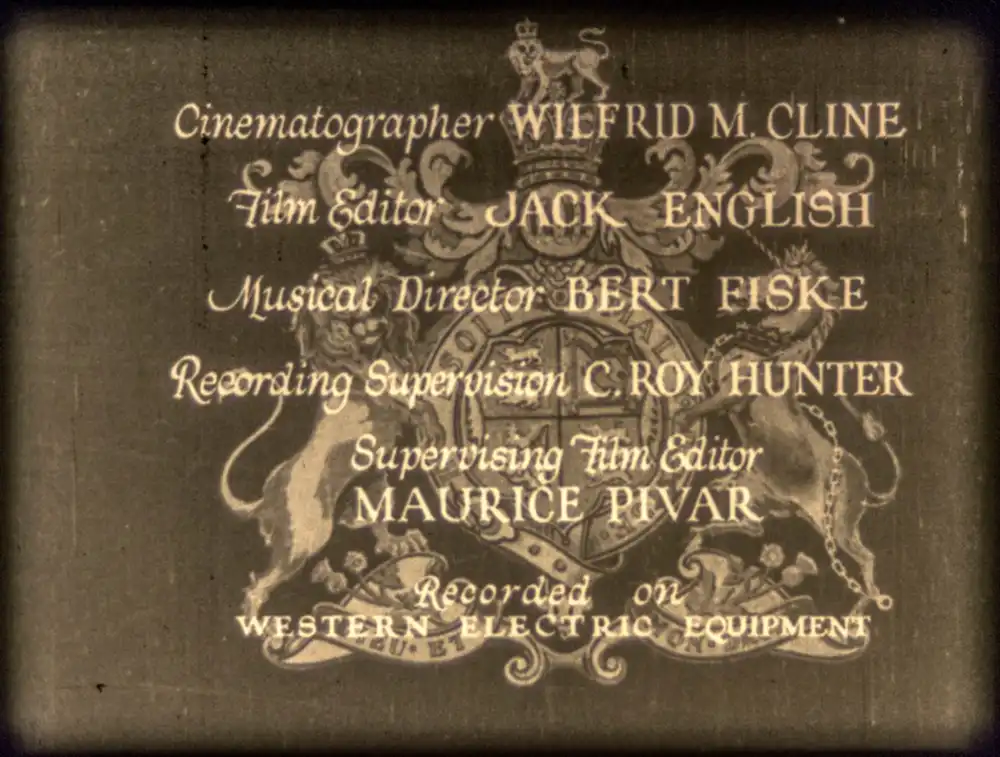 Cinematographer WILFRID M. CLINE
Film Editor JACK ENGLISH
Musical Director BERT FISKE
Recording Supervision C. ROY HUNTER
Supervising Film Editor
MAURICE PIVAR
Recorded on
WESTERN ELECTRIC EQUIPMENT